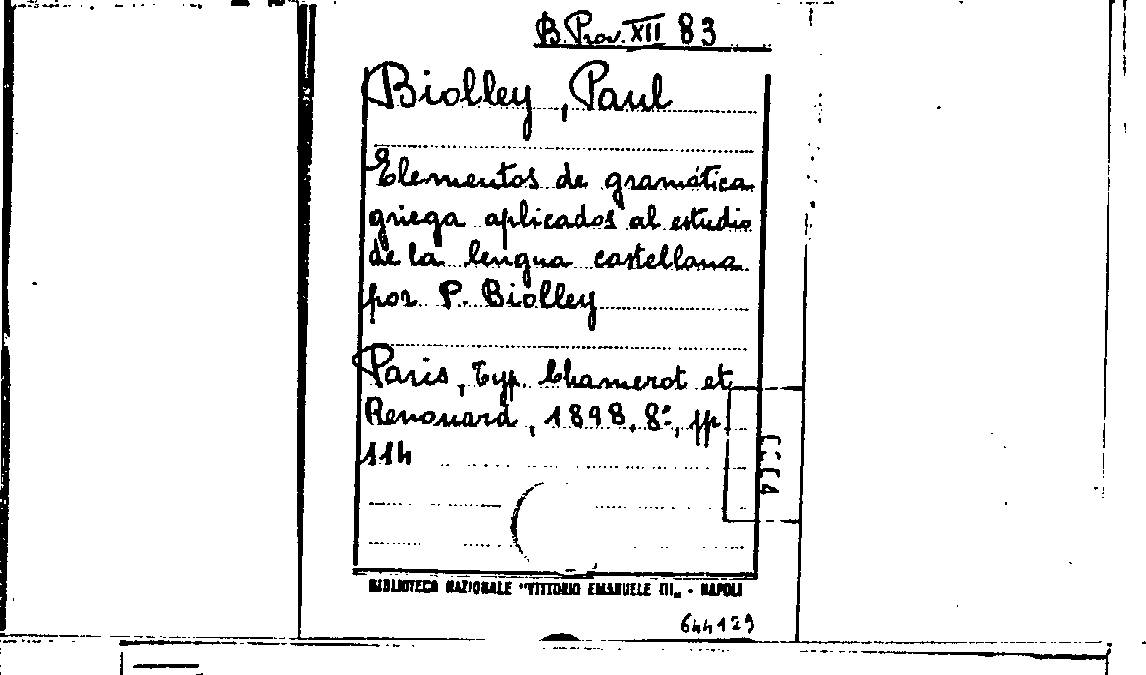 B. Prov. XII 83
Biolley, Paul
Elementos de gramática
griega aplicados al estudio
de la lengua castellana
por P. Biolley
Paris, Typ. Chamerot et
Renouard, 1898, 8°, pp
114
BIBLIOTECA NAZIONALE "VITTORIO EMANUELE III„ - NAPOLI
644129